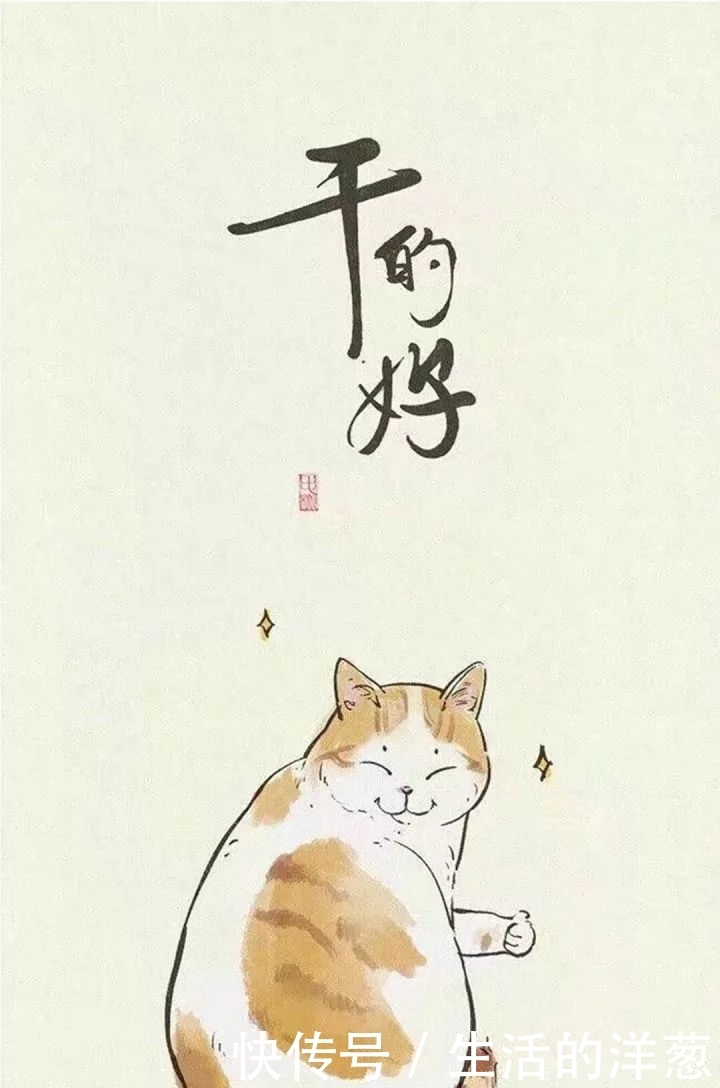 干的好
快传号 / 生活的洋葱